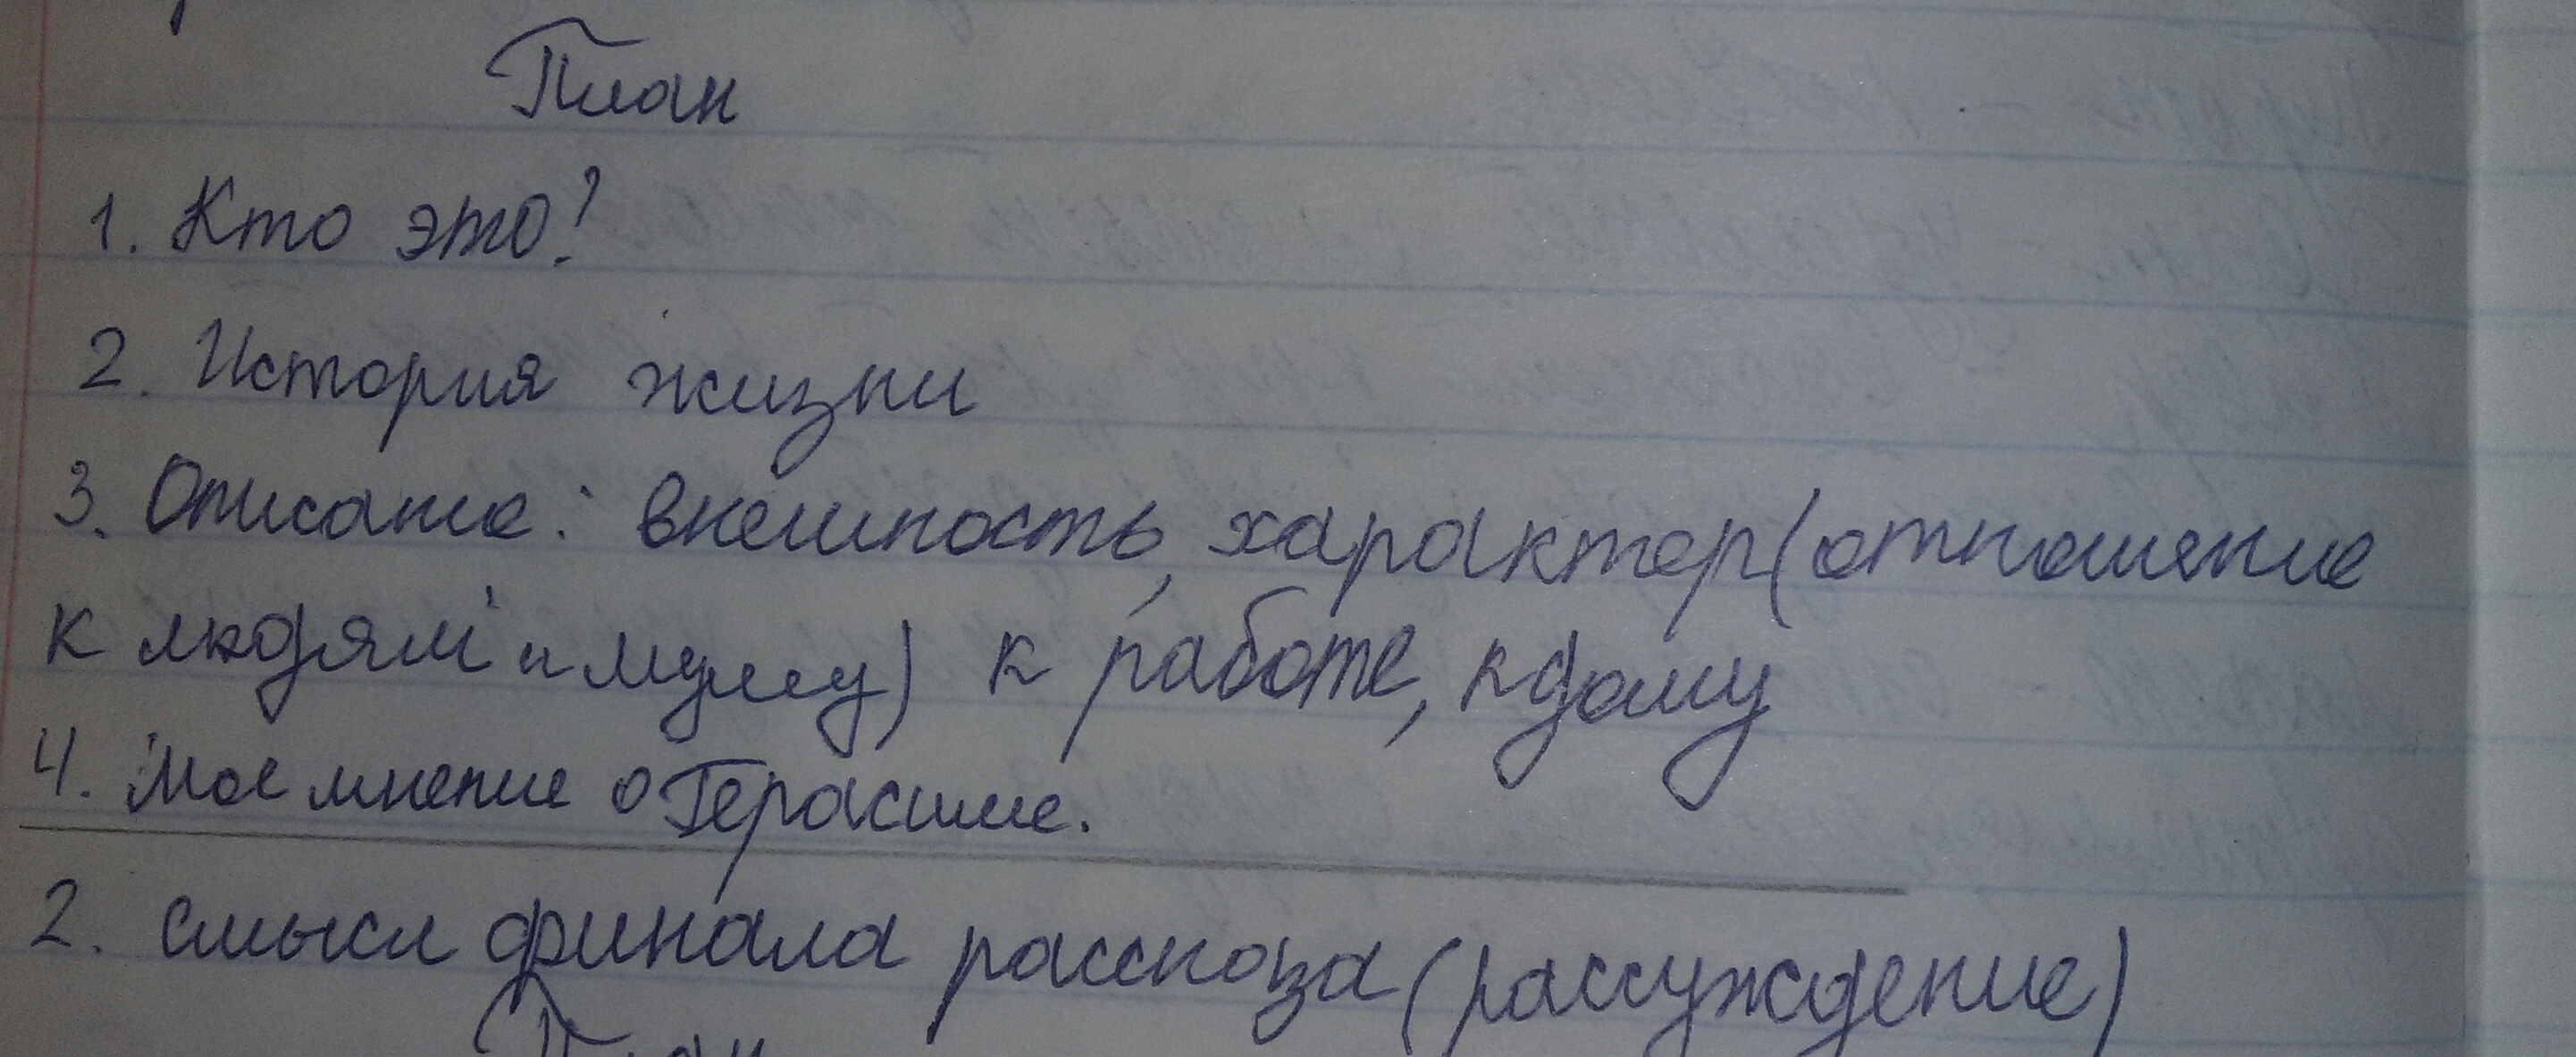 План
1. Кто это?
2. История жизни
3. Описание: внешность, характер (отношение
к людям и муму) к работе, к дому
4. Мое мнение о Герасиме.
2. смысл финала рассказа (рассуждение)
План